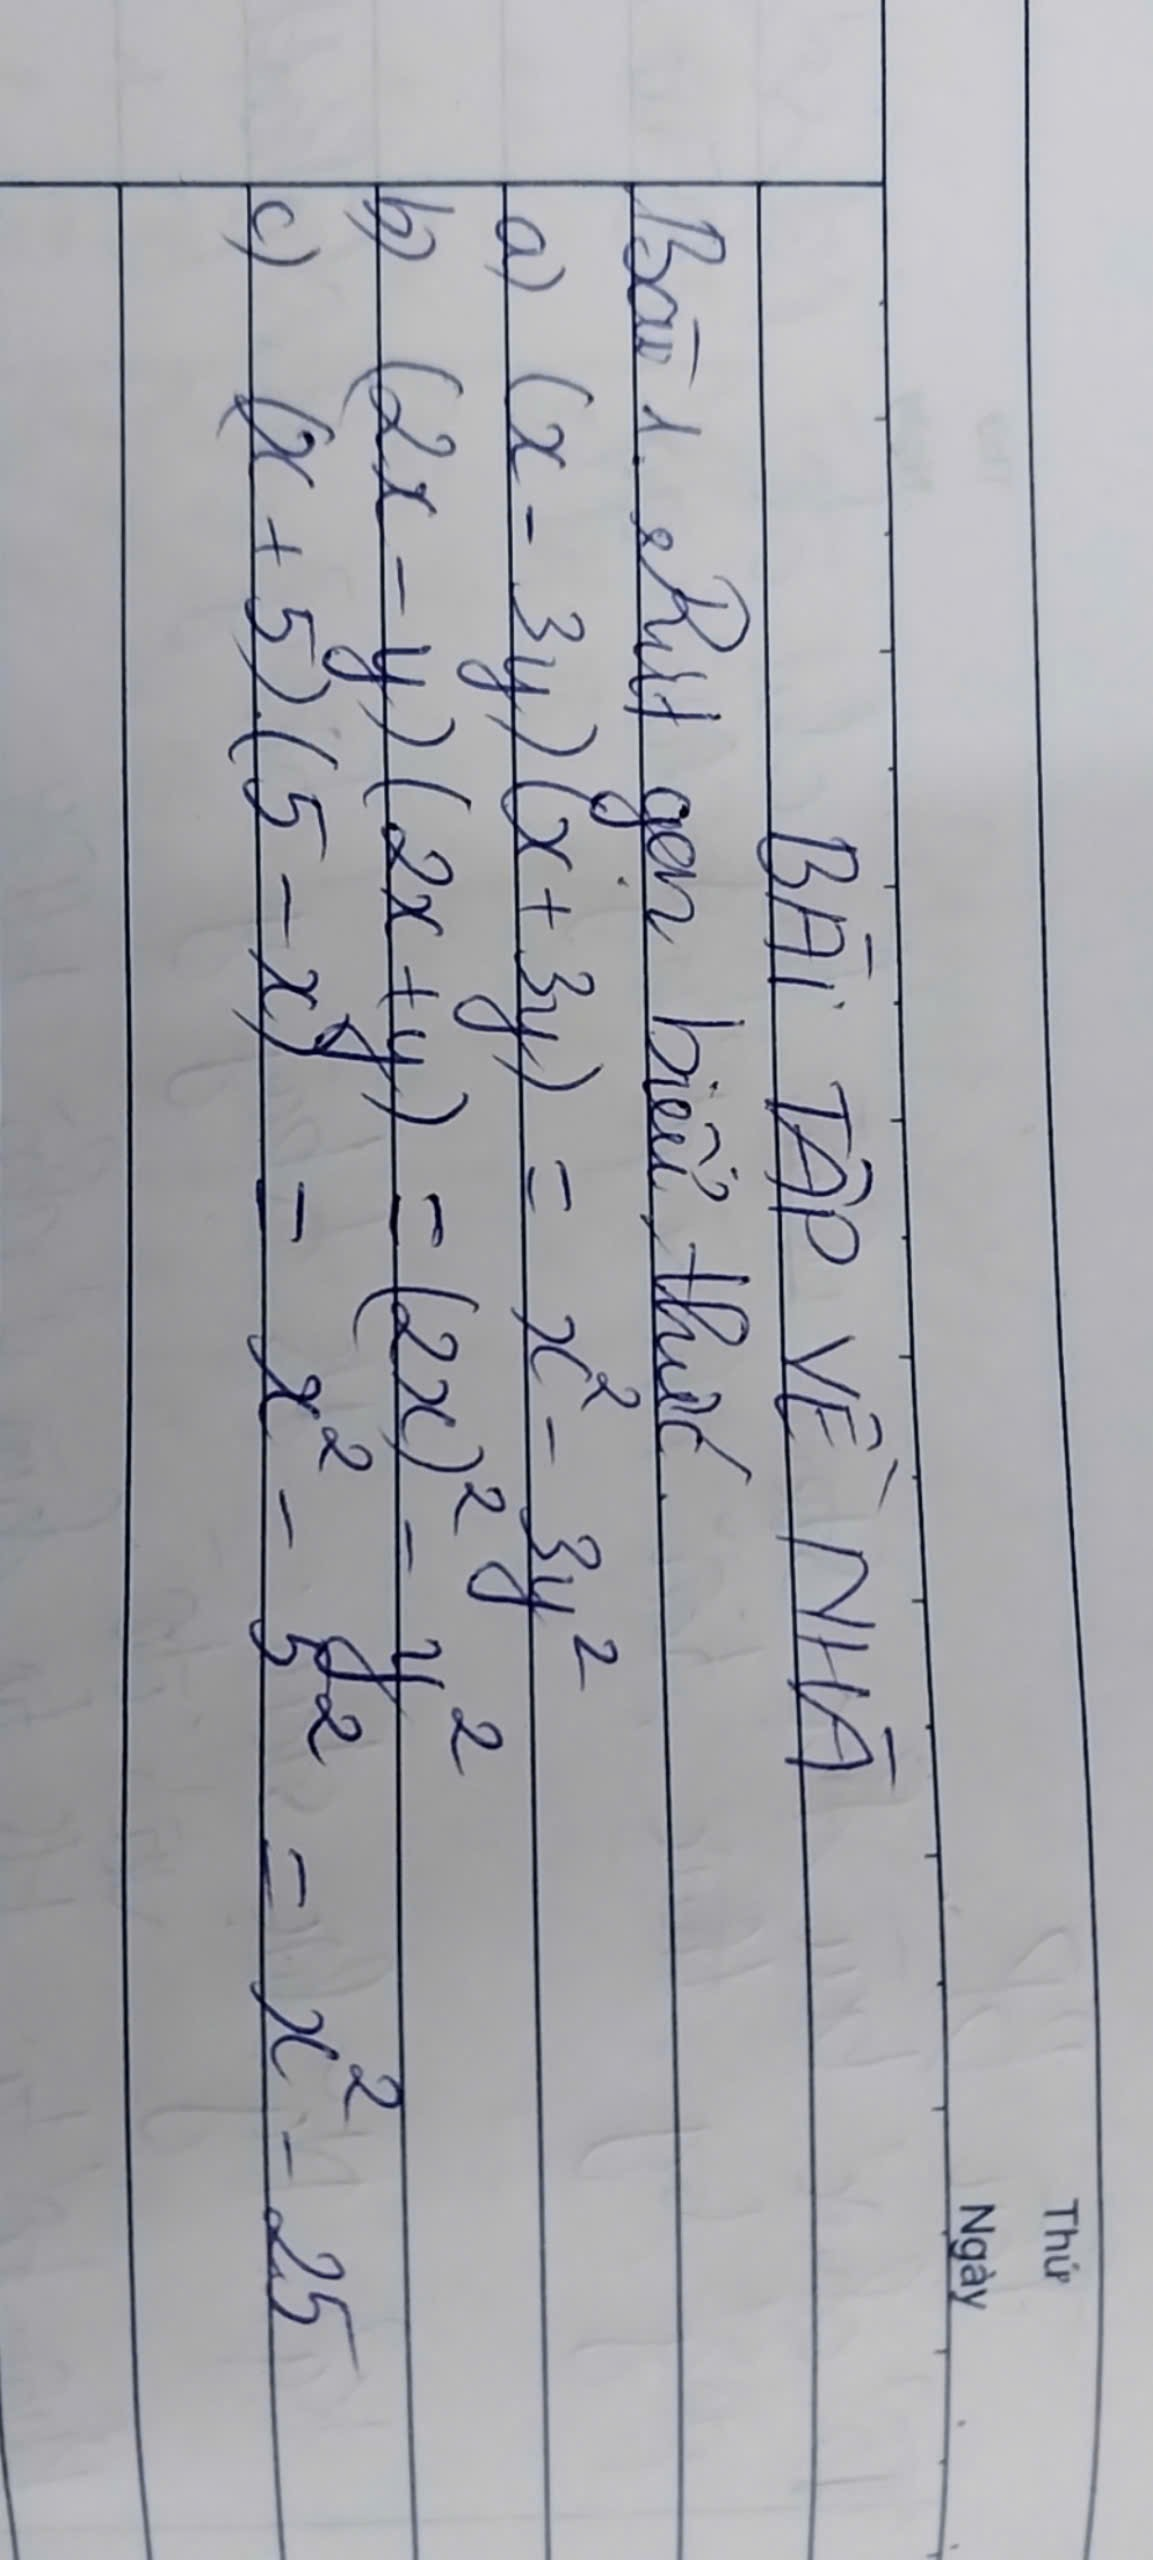 Thứ
Ngày
BÀI TẬP VỀ NHÀ
Bài 1. Rút gọn biểu thức.
a) (x - 3y)(x + 3y) = x² - 3y²
b) (2x - y)(2x + y) = (2x)² - y²
c) (x + 5).(5 - x) = x² - 5² = x² - 25